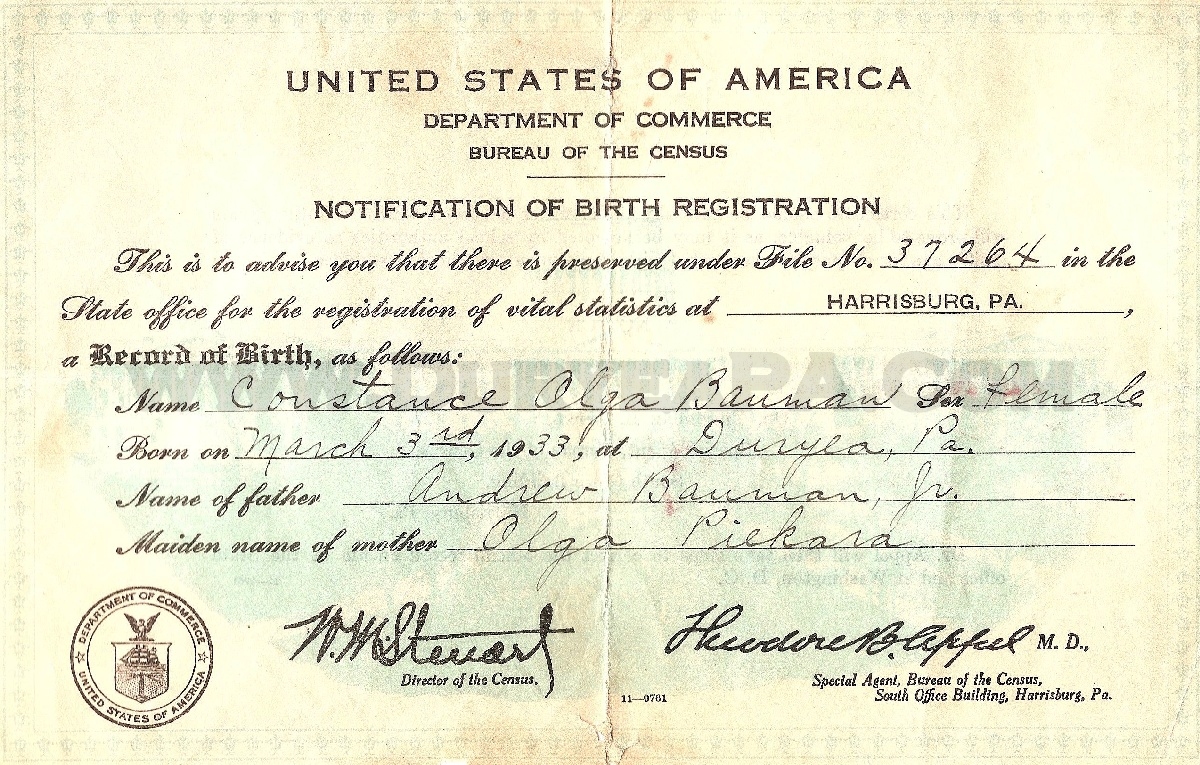 UNITED STATES OF AMERICA
DEPARTMENT OF COMMERCE
BUREAU OF THE CENSUS
NOTIFICATION OF BIRTH REGISTRATION
This is to advise you that there is preserved under File No. 37264 in the
State office for the registration of vital statistics at HARRISBURG, PA.,
a Record of Birth, as follows:
WWW.DURYEAPA.COM
Name Constance Olga Bauman Sex Female
Born on March 3rd, 1933, at Duryea, Pa.
Name of father Andrew Bauman, Jr.
Maiden name of mother Olga Piekara
DEPARTMENT OF COMMERCE
UNITED STATES OF AMERICA
W. M. Steuart
Director of the Census.
11—0761
Theodore B. Appel M. D.,
Special Agent, Bureau of the Census,
South Office Building, Harrisburg, Pa.